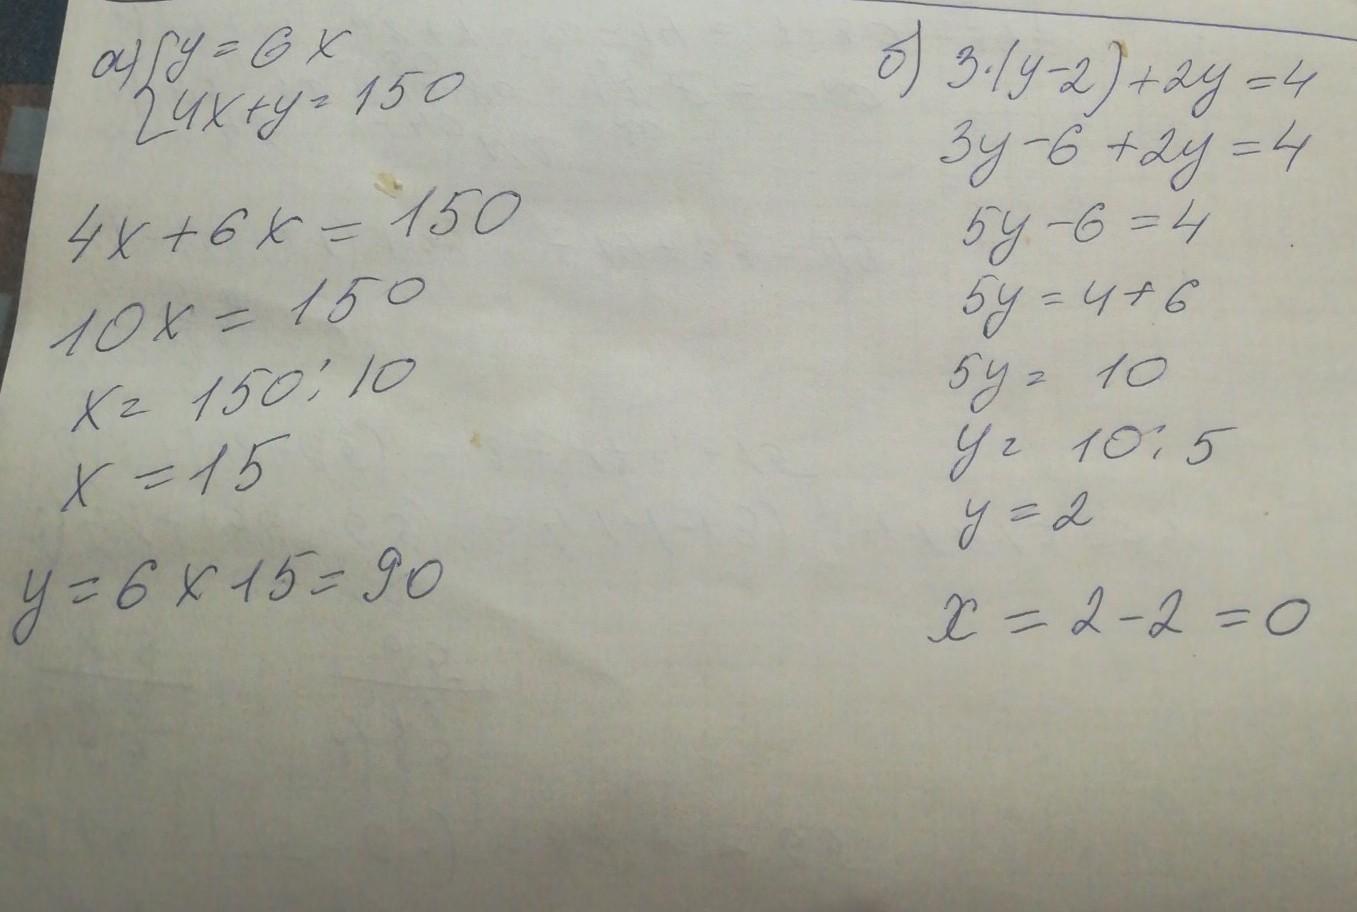 а) { y = 6 x
4x + y = 150
4x + 6x = 150
10x = 150
x = 150 : 10
x = 15
y = 6 x 15 = 90
б) 3·(y-2) + 2y = 4
3y - 6 + 2y = 4
5y - 6 = 4
5y = 4 + 6
5y = 10
y = 10 : 5
y = 2
x = 2 - 2 = 0